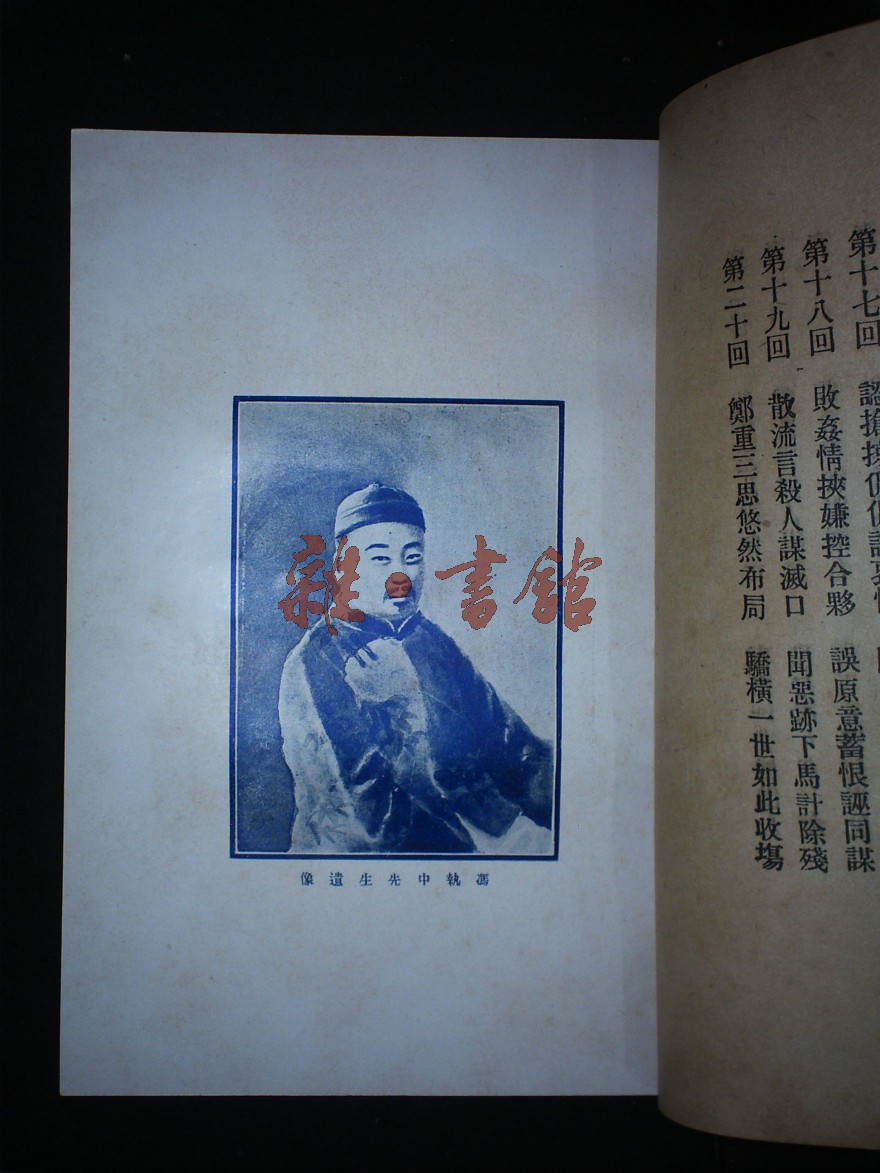 第十七回
第十八回 敗姦情挾嫌控合夥 誤原意蓄恨誣同謀
第十九回 散流言殺人謀滅口 聞惡跡下馬計除殘
第二十回 鄭重三思悠然布局 驕橫一世如此收塲
雜·書館
馮執中先生遺像